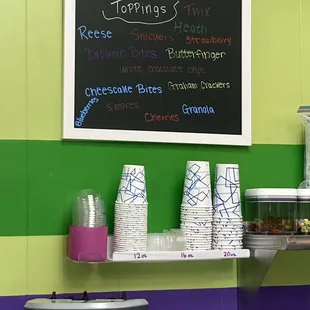 Toppings
Twix
Heath
Reese
Snickers
Strawberry
Brownie Bites
Butterfinger
white chocolate chips
Cheescake Bites
Graham Crackers
Blueberries
S'mores
Granola
Cherries
12oz
16oz
20oz